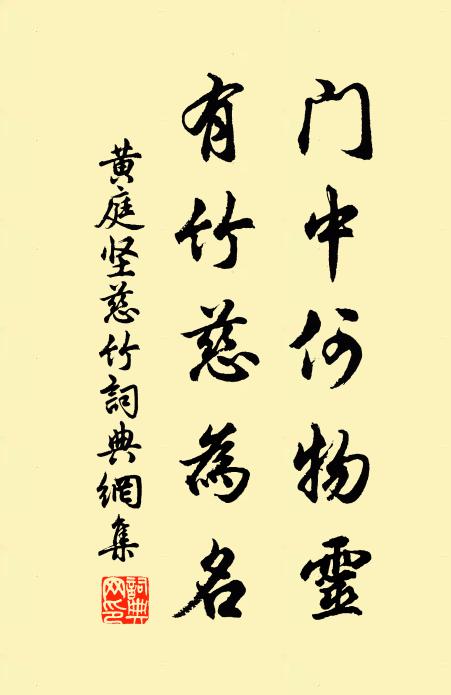 门中何物靈
有竹慈為名
黄庭坚慈竹詞典網集
詞典
网印